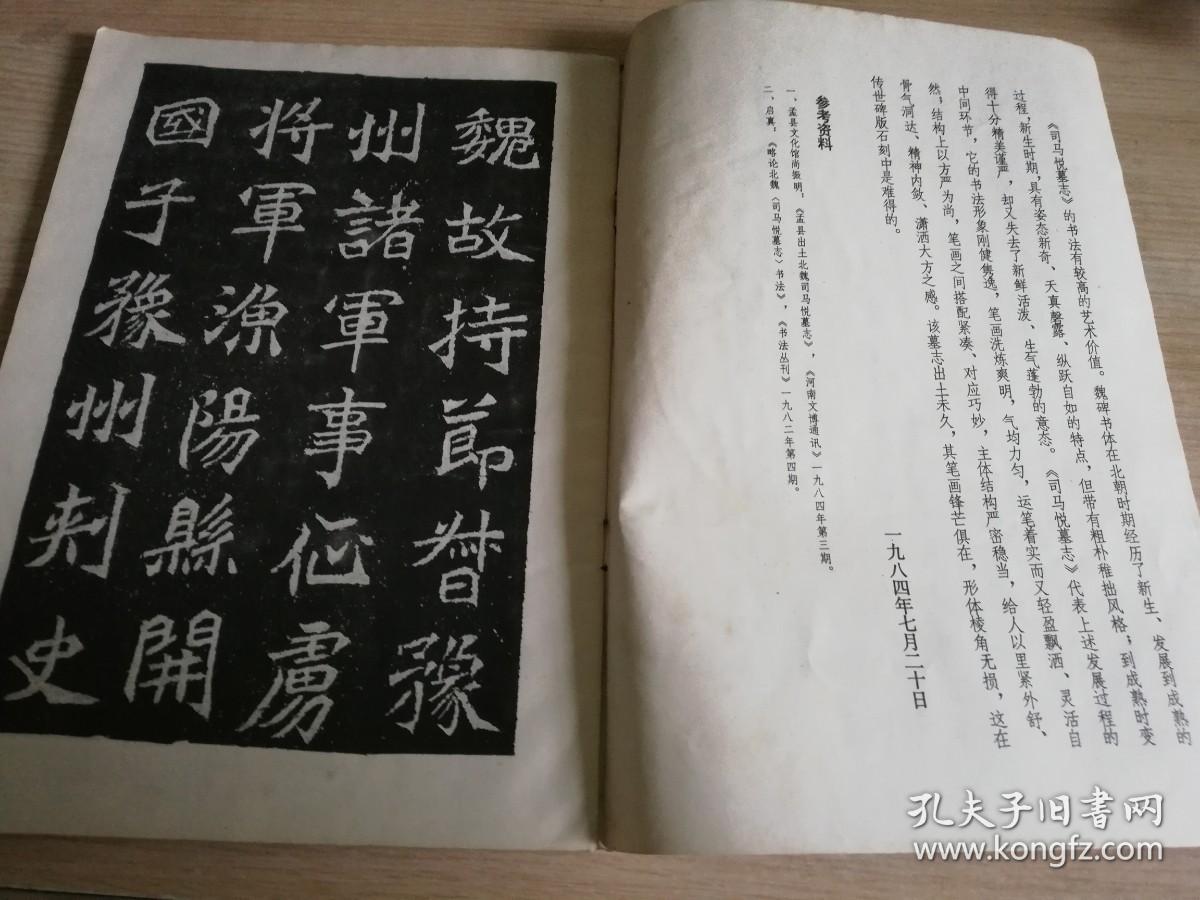 《司马悦墓志》的书法有较高的艺术价值。魏碑书体在北朝时期经历了新生、发展到成熟的
过程，新生时期，具有姿态新奇、天真罄露、纵跃自如的特点，但带有粗朴稚拙风格；到成熟时变
得十分精美谨严，却又失去了新鲜活泼、生气蓬勃的意态。《司马悦墓志》代表上述发展过程的
中间环节，它的书法形象刚健隽逸，笔画洗炼爽明，气均力匀，运笔着实而又轻盈飘洒、灵活自
然，结构上以方严为尚，笔画之间搭配紧凑、对应巧妙，主体结构严密稳当，给人以里紧外舒、
骨气洞达、精神内敛、潇洒大方之感。该墓志出土未久，其笔画锋芒俱在，形体棱角无损，这在
传世碑版石刻中是难得的。
一九八四年七月二十日
参考资料
一、孟县文化馆尚振明：《孟县出土北魏司马悦墓志》，《河南文博通讯》一九八四年第三期。
二、启真：《略论北魏〈司马悦墓志〉书法》，《书法丛刊》一九八二年第四期。
魏故持節督豫
州諸軍事征虜
將軍漁陽縣開
國子豫州刺史
孔夫子旧书网
www.kongfz.com